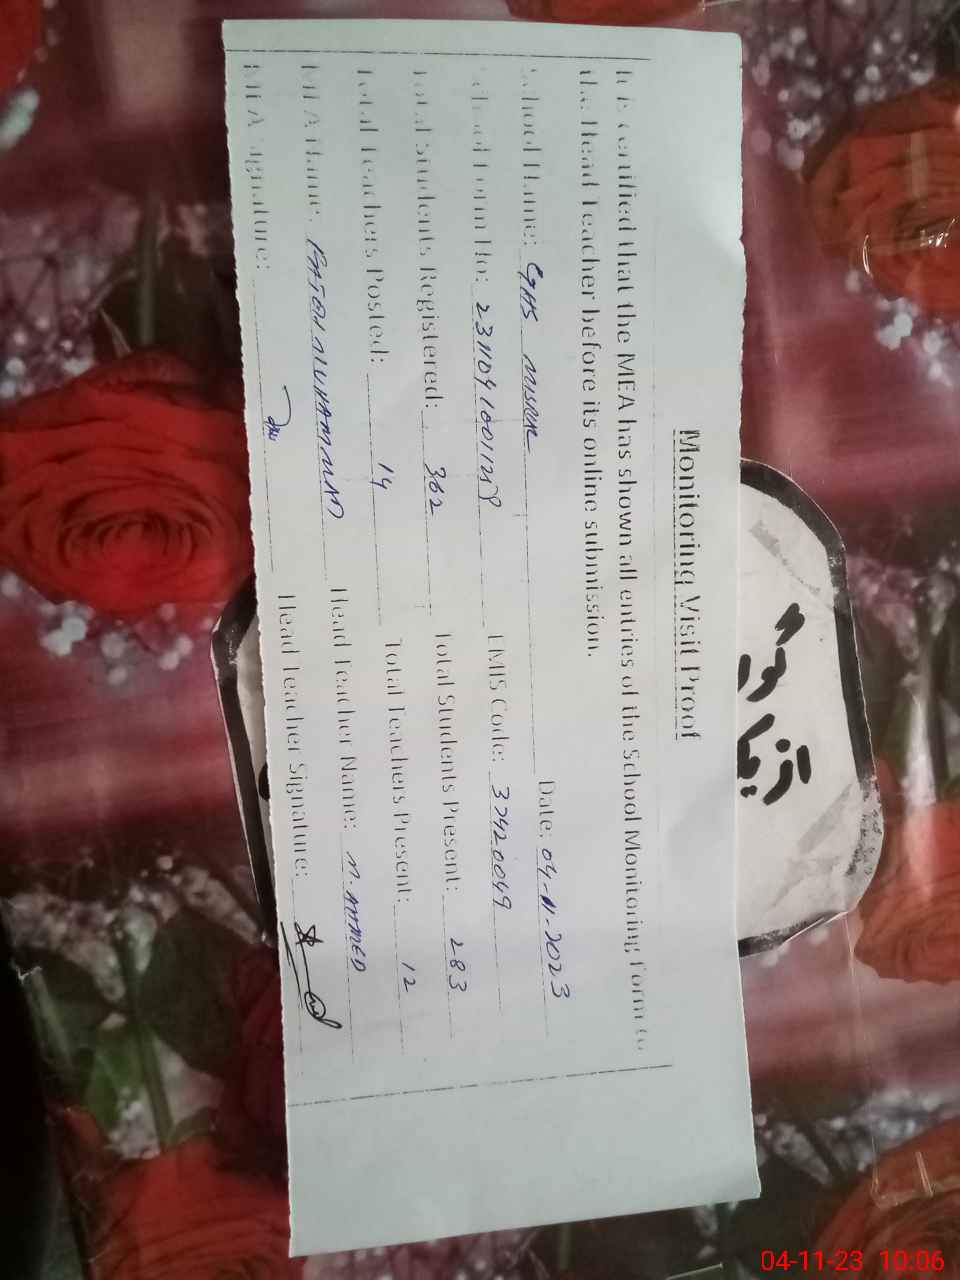 Monitoring Visit Proof
It is certified that the MEA has shown all entries of the School Monitoring Form to
the Head Teacher before its online submission.
School Name: GHS Date: 04-11-2023
School Form No: EMIS Code: 37420049
Total Students Registered: 362 Total Students Present: 283
Total Teachers Posted: 14 Total Teachers Present: 12
MEA Name: MUHAMMAD Head Teacher Name: M. AHMED
MEA Signature: Head Teacher Signature:
04-11-23 10:06